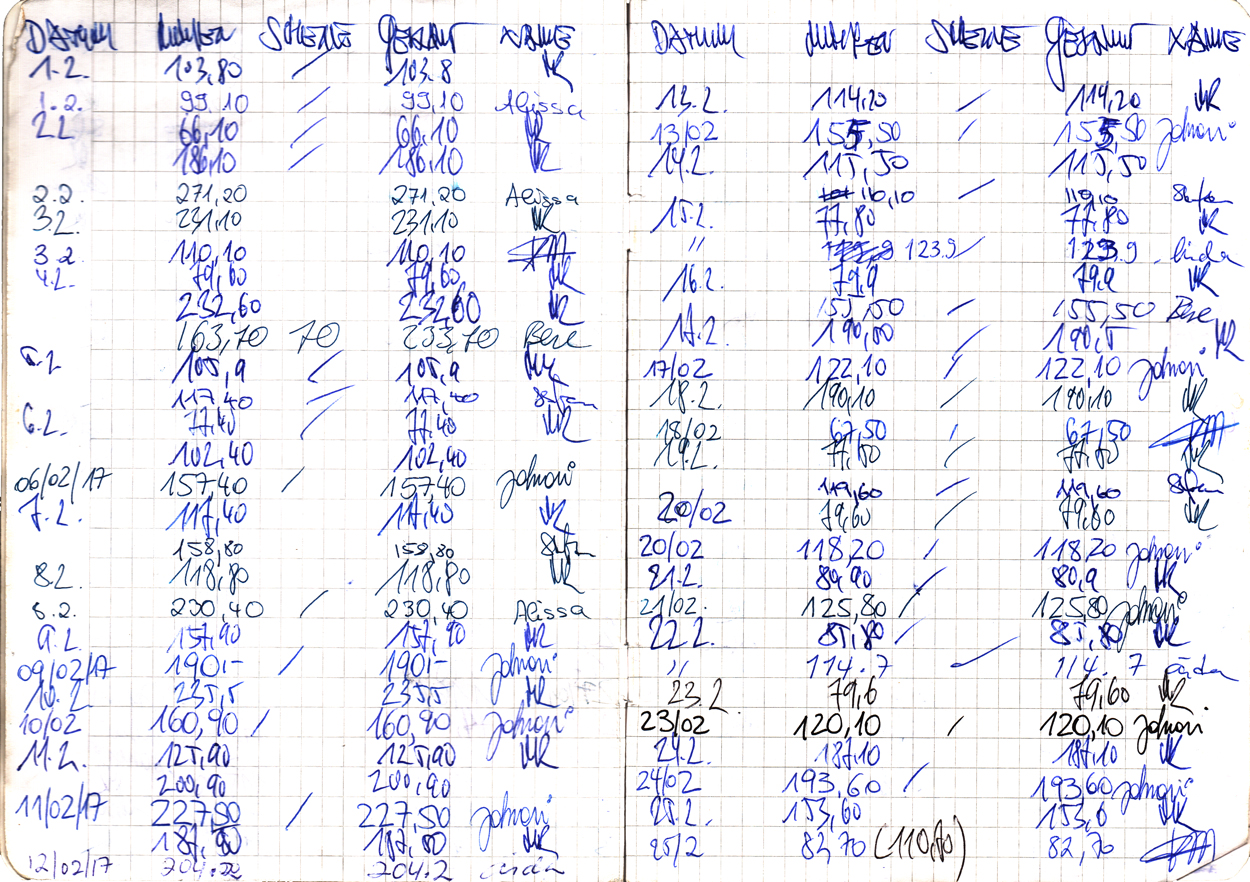 DATUM MÜNZEN SCHEINE GESAMT NAME
1.2. 103,80 / 103.8
1.2. 99.10 / 99,10 Alissa
2.2 66,10 / 66,10
186,10 / 186,10
2.2. 271,20 271,20 Alissa
3.2. 231,10 231,10
3.2. 110,10 110,10
4.2. 79,60 79,60
232,60 232,60
163,70 70 233,70 Bere
5.2 105,9 / 105,9
117,40 / 117,40 Stefan
6.2. 77,40 / 77,40
102,40 102,40
06/02/17 157,40 / 157,40 Johnoni
7.2. 117,40 117,40
158,80 158,80 Stefan
8.2. 118,80 118,80
8.2. 230,40 / 230,40 Alissa
9.2 157,90 157,90
09/02/17 190,- / 190,- Johnoni
10.2 235,5 235,5
10/02 160,90 / 160,90 Johnoni
11.2. 125,90 125,90
200,90 200,90
11/02/17 227,50 / 227,50 Johnoni
12/02/17 204.2 Linda
DATUM MÜNZEN SCHEINE GESAMT NAME
13.2. 114,20 / 114,20
13/02 155,50 / 155,50 Johnoni
14.2. 115,50 115,50
110,10 / 110,10 Stefan
15.2. 77,80 77,80
" 123.9 / 123.9 Linda
16.2. 79,9 79,9
155,50 / 155,50 Bere
17.2. 190,50 / 190,5
17/02 122,10 / 122,10 Johnoni
18.2. 190,10 / 190,10
18/02 67,50 / 67,50
19.2. 77,50 / 77,50
119,60 / 119,60 Stefan
20/02 79,60 / 79,60
20/02 118,20 / 118,20 Johnoni
21.2. 80,90 / 80,9
21/02. 125,80 / 125,80 Johnoni
22.2. 85,80 / 85,80
" 114.7 / 114.7 Linda
23.2 79,6 79,60
23/02 120,10 / 120,10 Johnoni
24.2. 187,10 187,10
24/02 193,60 / 193,60 Johnoni
25.2. 153,60 153,6
25/2 82,70 (110,70) 82,70